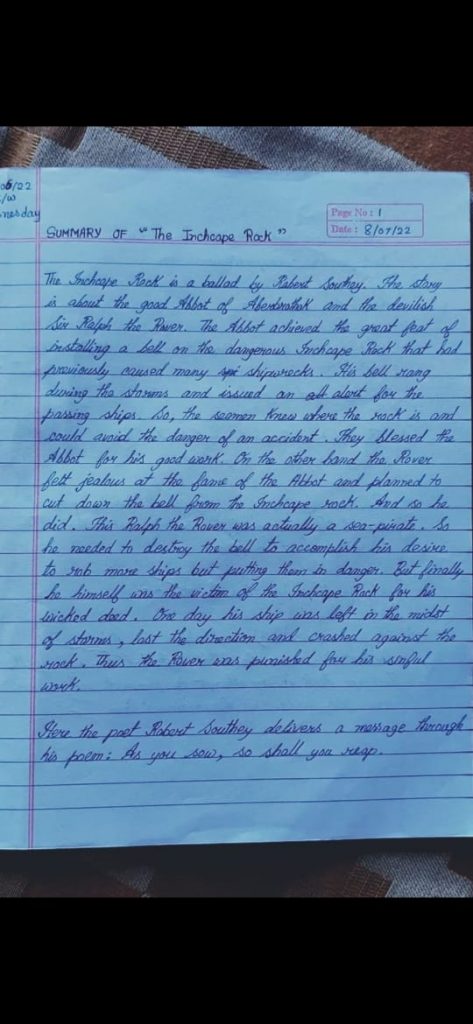 06/22
/w
nesday
Page No: 1
Date: 8/07/22
SUMMARY OF "The Inchcape Rock"
The Inchcape Rock is a ballad by Robert Southey. The story
is about the good Abbot of Aberbrothok and the devilish
Sir Ralph the Rover. The Abbot achieved the great feat of
installing a bell on the dangerous Inchcape Rock that had
previously caused many shipwrecks. His bell rang
during the storms and issued an alert for the
passing ships. So, the seamen knew where the rock is and
could avoid the danger of an accident. They blessed the
Abbot for his good work. On the other hand the Rover
felt jealous at the fame of the Abbot and planned to
cut down the bell from the Inchcape rock. And so he
did. This Ralph the Rover was actually a sea-pirate. So
he needed to destroy the bell to accomplish his desire
to rob more ships but putting them in danger. But finally
he himself was the victim of the Inchcape Rock for his
wicked deed. One day his ship was left in the midst
of storms, lost the direction and crashed against the
rock. Thus the Rover was punished for his sinful
work.
Here the poet Robert Southey delivers a message through
his poem: As you sow, so shall you reap.